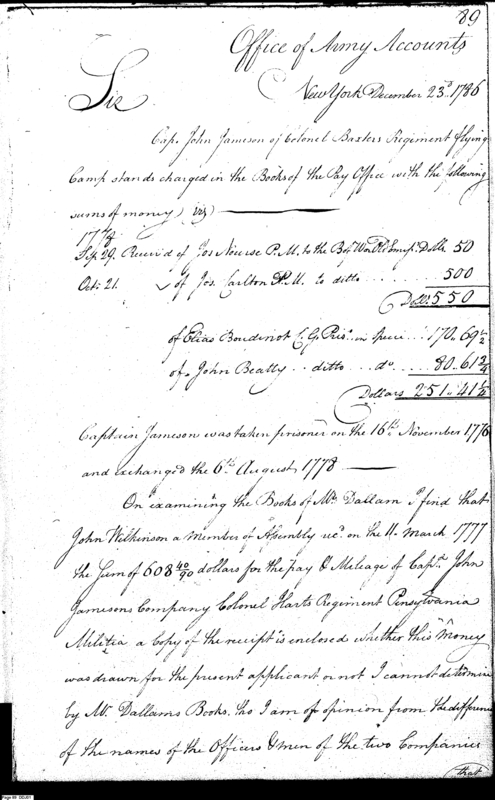 89
Office of Army Accounts
New York December 23d. 1786
Sir
Cap. John Jameson of Colonel Baxters Regiment flying
Camp stands charged in the Books of the Pay Office with the following
sums of money (viz)
1778
Sep. 29. Receiv'd of Jos Nourse P.M. to the Bd. War Old Emis. Dolls. 50
Octr. 21. of Jos. Carlton P.M. to ditto ...... 500
Dolls. 550
of Elias Boudinot C. G. Pris. in specie ... 170.. 69 1/2
of John Beatty .. ditto ... do .. 80.. 61 3/4
Dollars 251.. 41 1/2
Captain Jameson was taken prisoner on the 16th. November 1776
and exchanged the 6th. August 1778
On examining the Books of Mr. Dallam I find that
John Wilkinson a Member of Assembly rec'd. on the 11. March 1777
the Sum of 608 40/90 dollars for the pay & Mileage of Capt. John
Jamesons Company Colonel Harts Regiment Pensylvania
Militia a Copy of the receipt is enclosed whether this Money
was drawn for the present applicant or not I cannot determine
by Mr. Dallams Books. tho I am of opinion from the difference
of the names of the Officers & men of the two Companies
that
Page 88: DDJ01